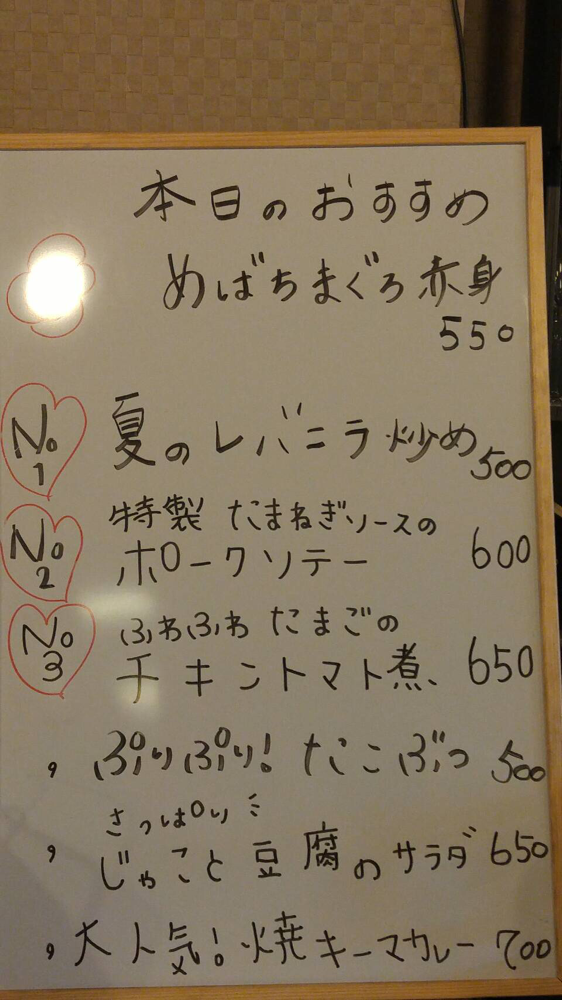 本日のおすすめ
めばちまぐろ赤身
550
No1 夏のレバニラ炒め 500
特製 たまねぎソースの
No2 ポークソテー 600
ふわふわ たまごの
No3 チキントマト煮、 650
, ぷりぷり! たこぶつ 500
さっぱり
, じゃこと豆腐のサラダ 650
, 大人気! 焼キーマカレー 700